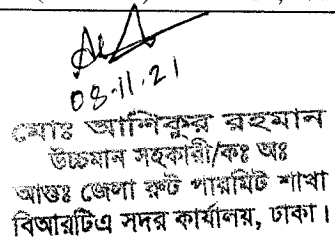 08-11-21
মোঃ আনিকুর রহমান
উচ্চমান সহকারী/কঃ অঃ
আন্তঃ জেলা রুট পারমিট শাখা
বিআরটিএ সদর কার্যালয়, ঢাকা।